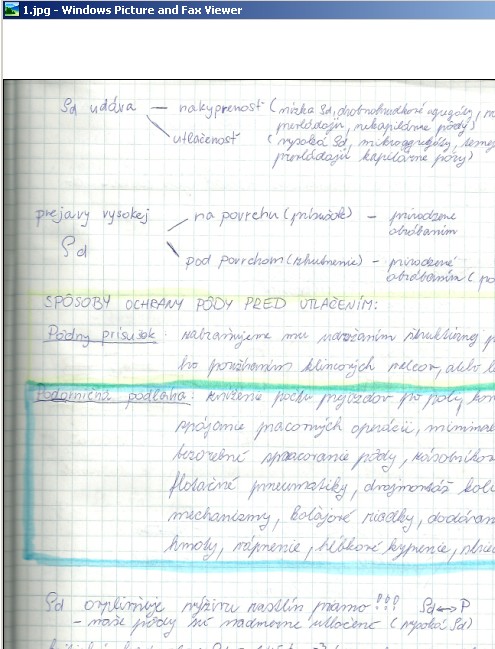 1.jpg - Windows Picture and Fax Viewer
ρd udáva — nakyprenosť (nízka ρd, drobnohrudkové agregáty,
prevládajú nekapilárne póry)
utlačenosť (vysoká ρd, mikroagregáty,
prevládajú kapilárne póry)
prejavy vysokej na povrchu (prísušok) - prirodzene
ρd obrábaním
pod povrchom (zhutnenie) - prirodzené
obrábaním (
SPÔSOBY OCHRANY PÔDY PRED UTLAČENÍM:
Pôdny prísušok: zabraňujeme mu
používaním klincových valcov, alebo
Podorničná podlaha: zníženie počtu prejazdov po poli,
spájanie pracovných operácií,
bezorebné spracovanie pôdy,
flotačné pneumatiky, dvojmontáž
mechanizmy, koľajové riadky,
hmoty, vápnenie, hĺbkové kyprenie,
ρd ovplivňuje výživu rastlín priamo!!! ρd↔P
- naše pôdy sú nadmerne utlačené (vysoká ρd)